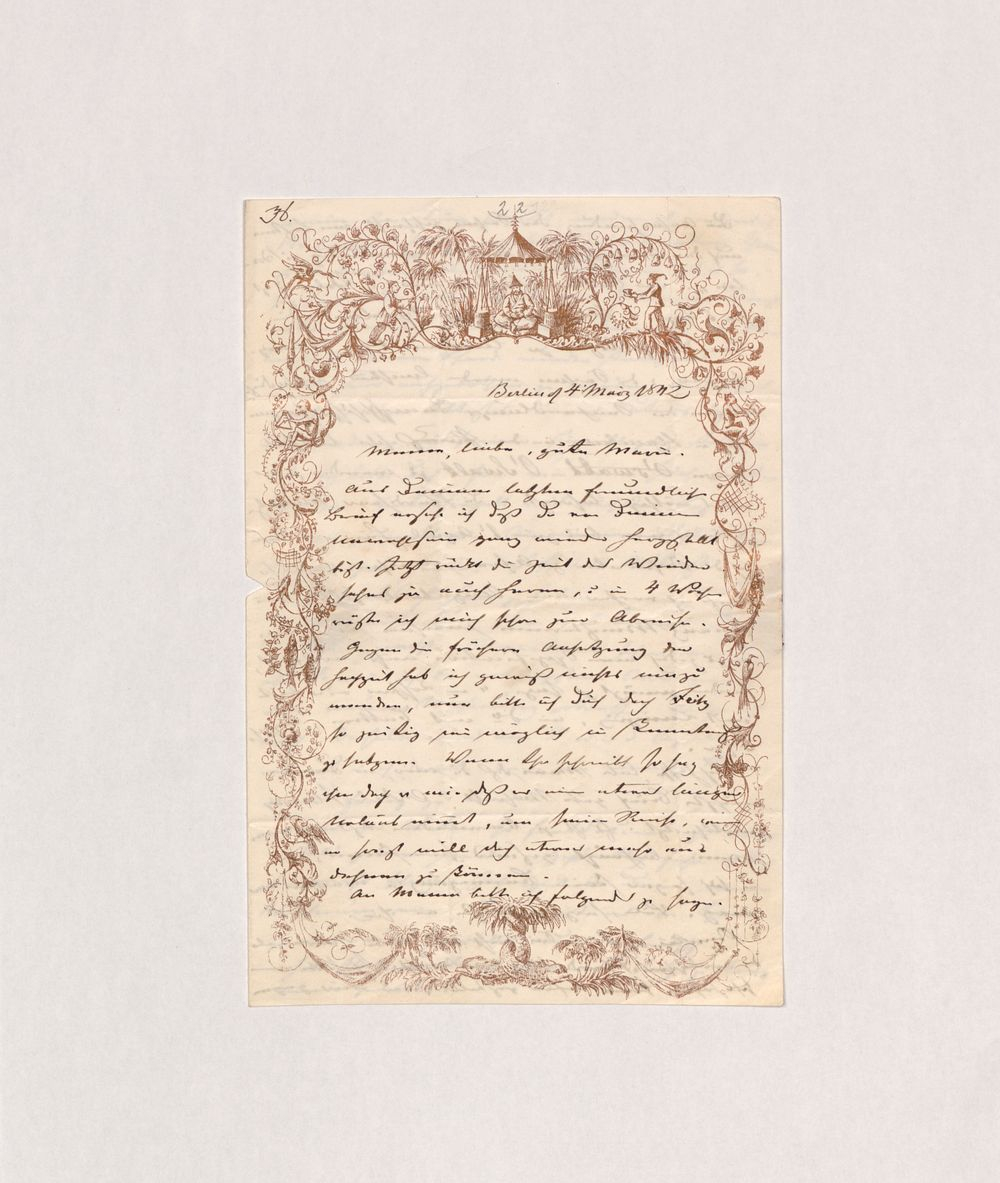 36.
22
Berlin d 4t März 1842
Meine, liebe, gute Marie.
Aus Deinem letzten freundlich
Brief ersehe ich daß Du von Deinem
Unwohlsein ganz wieder hergestellt
bist. Jetzt rückt die Zeit des Wieder
sehns ja auch heran, u in 4 Woch
rüste ich mich schon zur Abreise.
Gegen die frühere Ansetzung der
Hochzeit hab ich gewiß nichts einzu
wenden, nur bitte ich Dich doch Fritz
so zeitig wie möglich in Kenntniß
zu setzen. Wenn Ihr schreibt so sag
ihm doch v mir daß er einen etwas längern
Urlaub nimt, um seine Reise, wenn
er sonst will doch etwas mehr aus
dehnen zu können.
An Mama bitte ich folgendes zu sagen.